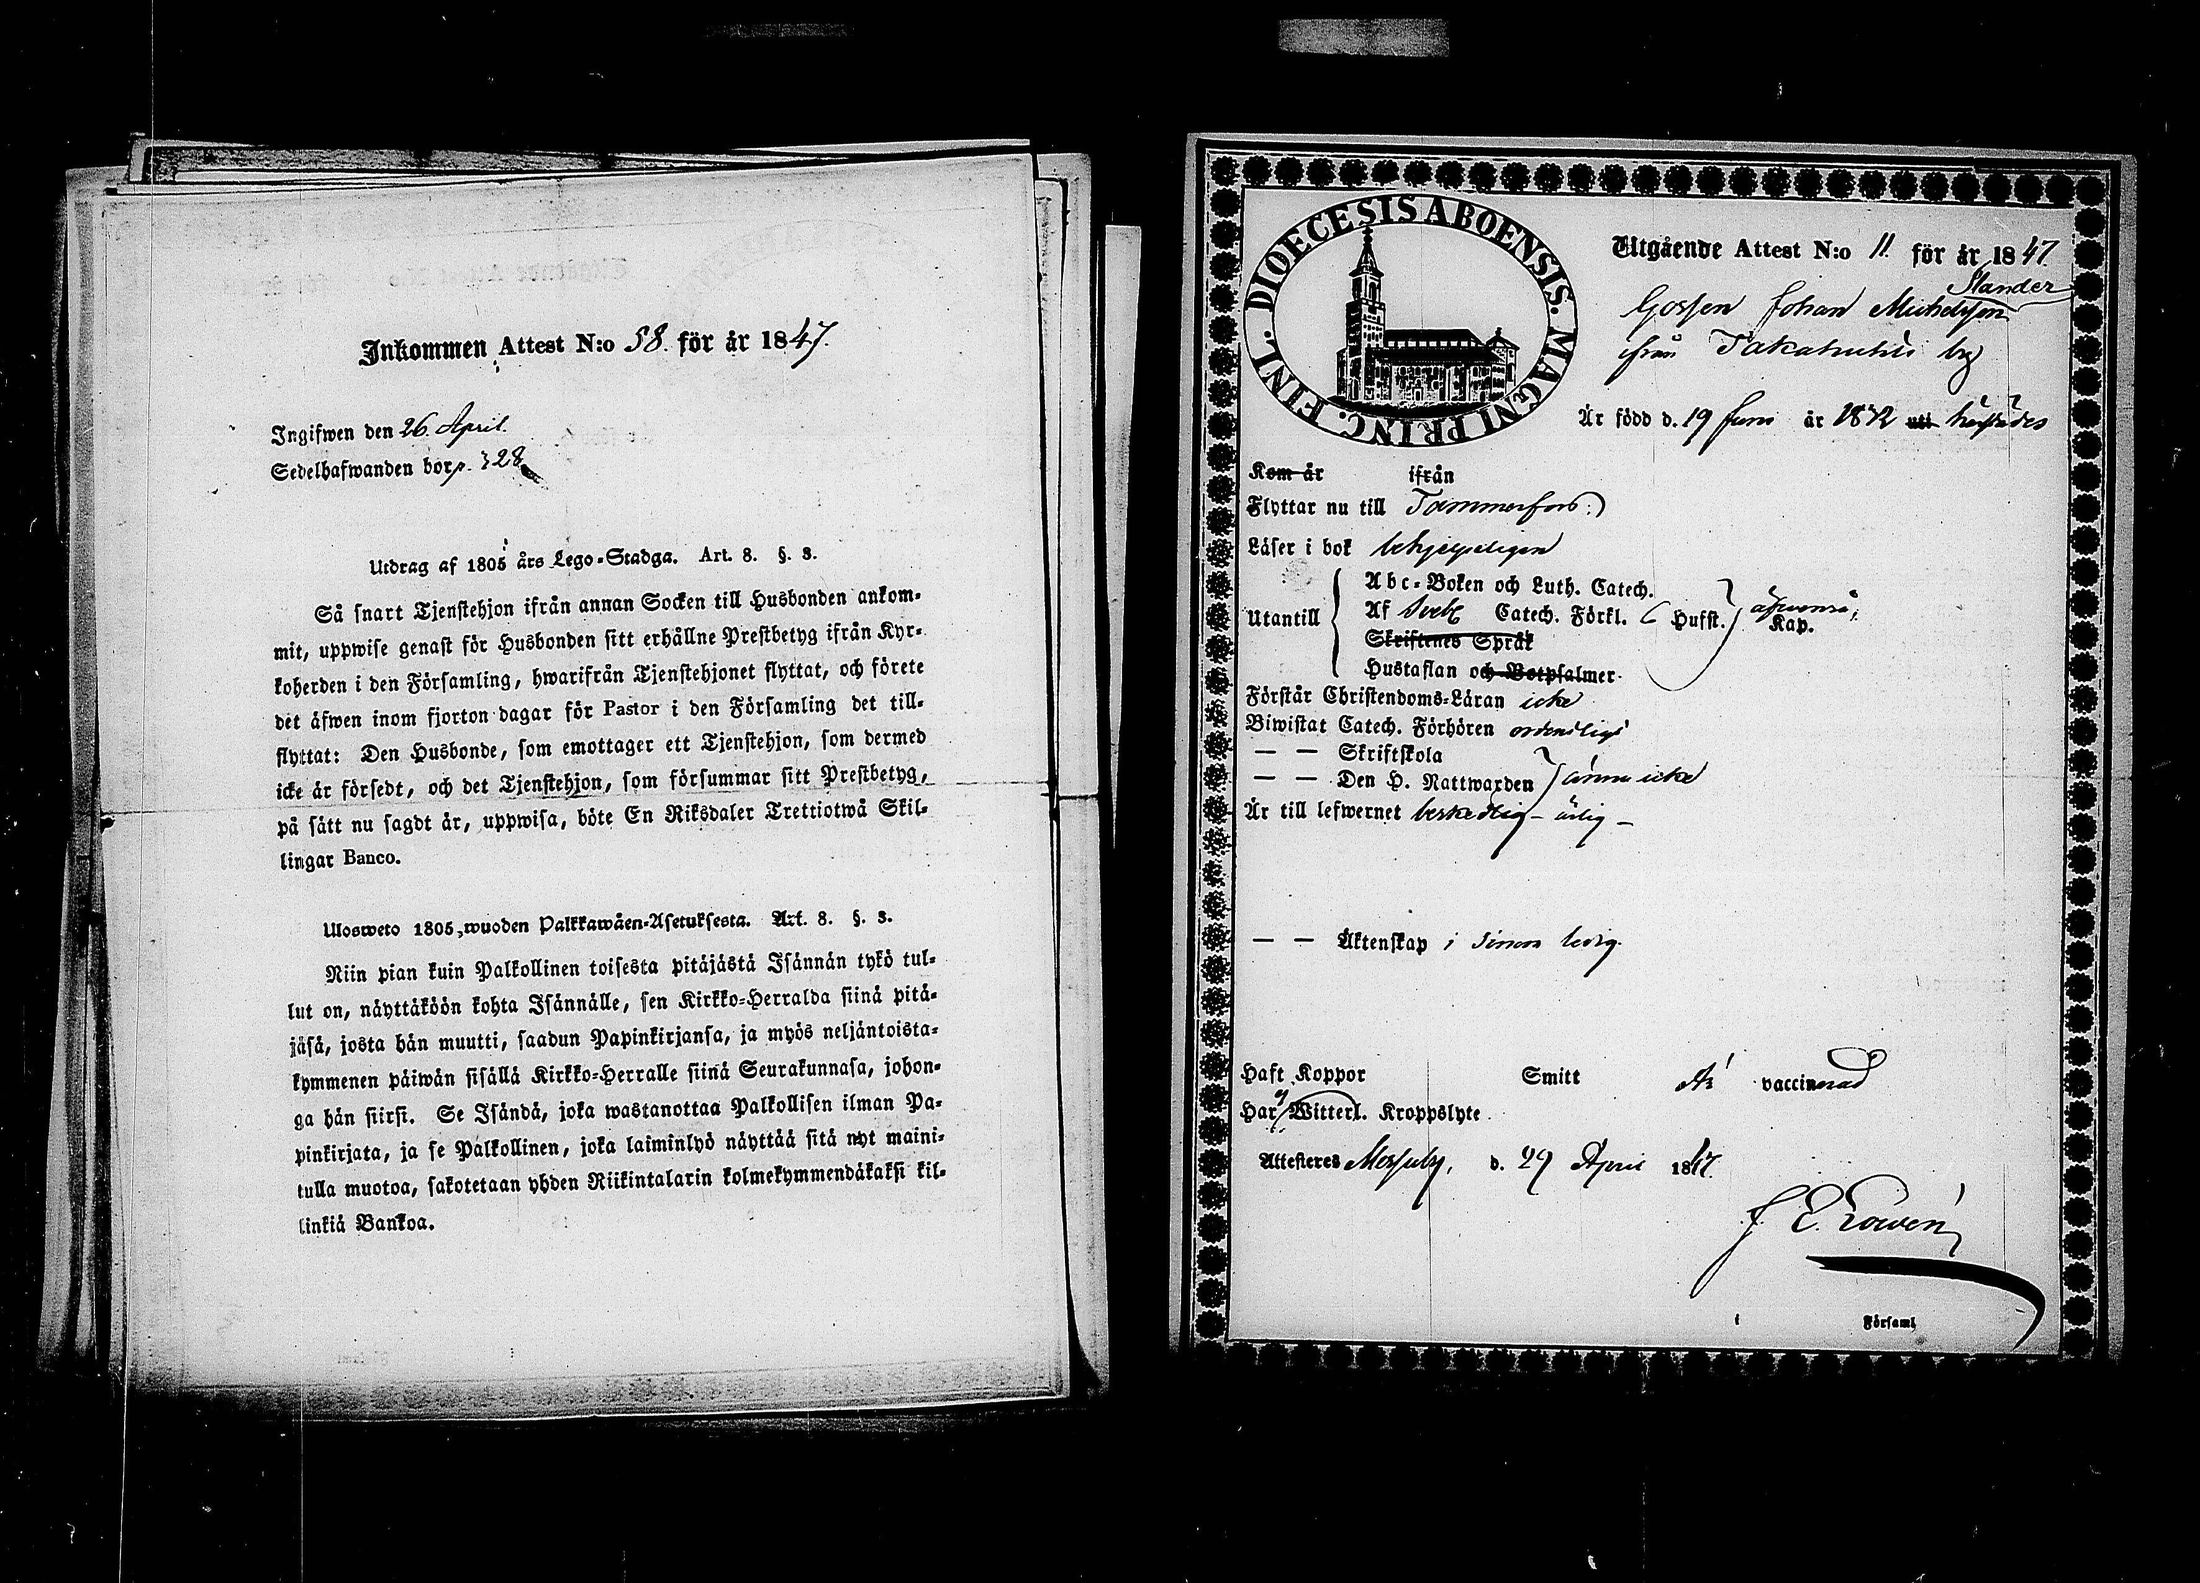 Inkommen Attest N:o 58. för år 1847.
Ingifwen den 26. April.
Sedelhafwanden bor p. 328
Utdrag af 1805 års Lego-Stadga. Art. 8. §. 3.
Så snart Tjenstehjon ifrån annan Socken till Husbonden ankom-
mit, uppwise genast för Husbonden sitt erhållne Prestbetyg ifrån Kyr-
koherden i den Församling, hwarifrån Tjenstehjonet flyttat, och förete
det äfwen inom fjorton dagar för Pastor i den Församling det till-
flyttat: Den Husbonde, som emottager ett Tjenstehjon, som dermed
icke är försedt, och det Tjenstehjon, som försummar sitt Prestbetyg,
på sätt nu sagdt är, uppwisa, böte En Riksdaler Trettiotwå Skil-
lingar Banco.
Ulosweto 1805, wuoden Palkkawäen-Asetuksesta. Art. 8. §. 3.
Niin pian kuin Palkollinen toisesta pitäjästä Isännän tykö tul-
lut on, näyttäköön kohta Isännälle, sen Kirkko-Herralda siinä pitä-
jäsä, josta hän muutti, saadun Papinkirjansa, ja myös neljäntoista-
kymmenen päiwän sisällä Kirkko-Herralle siinä Seurakunnasa, johon-
ga hän siirsi. Se Isändä, joka wastanottaa Palkollisen ilman Pa-
pinkirjata, ja se Palkollinen, joka laiminlyö näyttää sitä nyt maini-
tulla muotoa, sakotetaan yhden Riikintalarin kolmekymmendäkaksi kil-
linkiä Bankoa.
DIOECESIS ABOENSIS. MAGNI PRINC. FINL.
Utgående Attest N:o 11. för år 1847
Slander
Gossen Johan Michelsson
ifrån
Är född d. 19 Juni år 1832 uti härstädes
Kom år ifrån
Flyttar nu till Tammerfors:
Läser i bok behjelpeligen
Abc-Boken och Luth. Catech.
Utantill Af Sveb Catech. Förkl. Hufst. äfvenså; Kap.
Skriftenes Språk
Hustaflan och Botpsalmer
Förstår Christendoms-Läran icke
Biwistat Catech. Förhören ordentligt
— — Skriftskola
— — Den H. Nattwarden ännu icke
Är till lefwernet beskedlig - ärlig -
— — Äktenskap i sinom ledig.
Haft Koppor Smitt Är vaccinerad
Har ej Witterl. Kroppslyte
Attesteres Messuby, d. 29 April 1847.
i Församl.